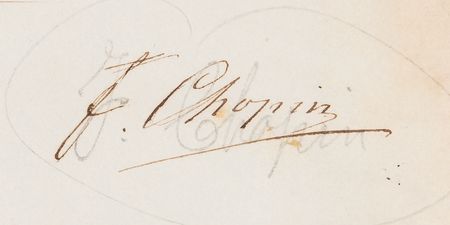 F. Chopin
F. Chopin